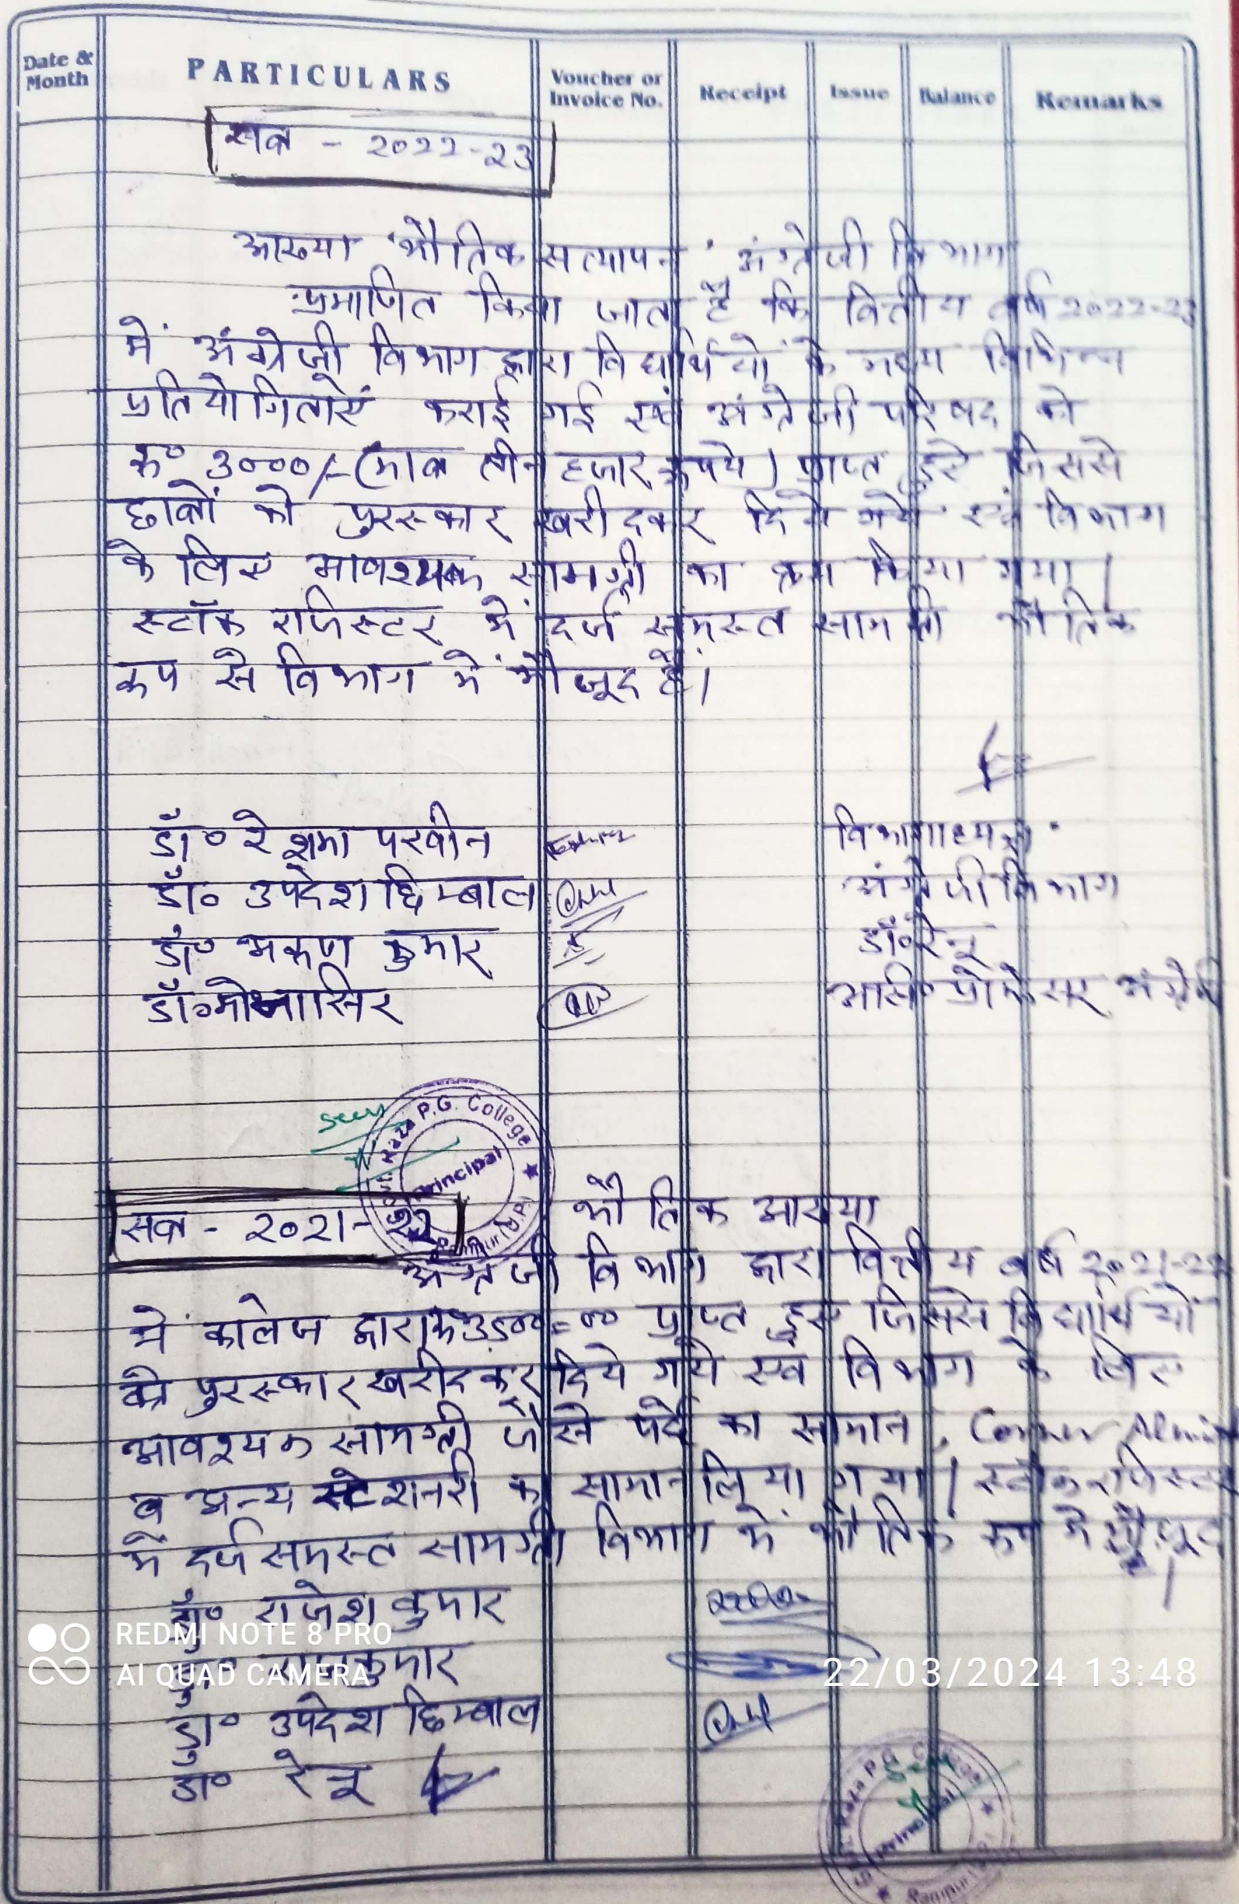 Date & Month PARTICULARS Voucher or Invoice No. Receipt Issue Balance Remarks
सत्र - २०२२-२३
आख्या 'भौतिक सत्यापन' अंग्रेजी विभाग
प्रमाणित किया जाता है कि वित्तीय वर्ष २०२२-२३
में अंग्रेजी विभाग द्वारा विद्यार्थियों के मध्य विभिन्न
प्रतियोगिताएं कराई गई एवं अंग्रेजी परिषद को
रु० ३०००/- (मात्र तीन हजार रूपये) प्राप्त हुऐ जिससे
छात्रों को पुरस्कार खरीदकर दिये गये एवं विभाग
के लिए आवश्यक सामग्री का क्रय किया गया।
स्टॉक रजिस्टर में दर्ज समस्त सामग्री भौतिक
रूप से विभाग में मौजूद है।
डॉ० रेशमा परवीन
विभागाध्यक्ष
डॉ० उपदेश छिम्बाल
अंग्रेजी विभाग
डॉ० अरूण कुमार
डॉ० रेनू
डॉ० मो० नासिर
असि० प्रोफेसर अंग्रेजी
Seen
Govt. Raza P.G. College
Principal
Rampur (U.P.)
सत्र - २०२१-२२
भौतिक आख्या
अंग्रेजी विभाग द्वारा वित्तीय वर्ष २०२१-२२
में कालेज द्वारा रू ३५००=०० प्राप्त हुए जिससे विद्यार्थियों
को पुरस्कार खरीदकर दिये गये एवं विभाग के लिए
आवश्यक सामग्री जैसे पर्दे का सामान, Corner Almirah
व अन्य स्टेशनरी का सामान लिया गया। स्टॉक रजिस्टर
में दर्ज समस्त सामग्री विभाग में भौतिक रूप में मौजूद
डॉ० राजेश कुमार
कुमार
डॉ० उपदेश छिम्बाल
डॉ० रेनू
REDMI NOTE 8 PRO
AI QUAD CAMERA
22/03/2024 13:48
Seen
Govt. Raza P.G. College
Principal
Rampur (U.P.)